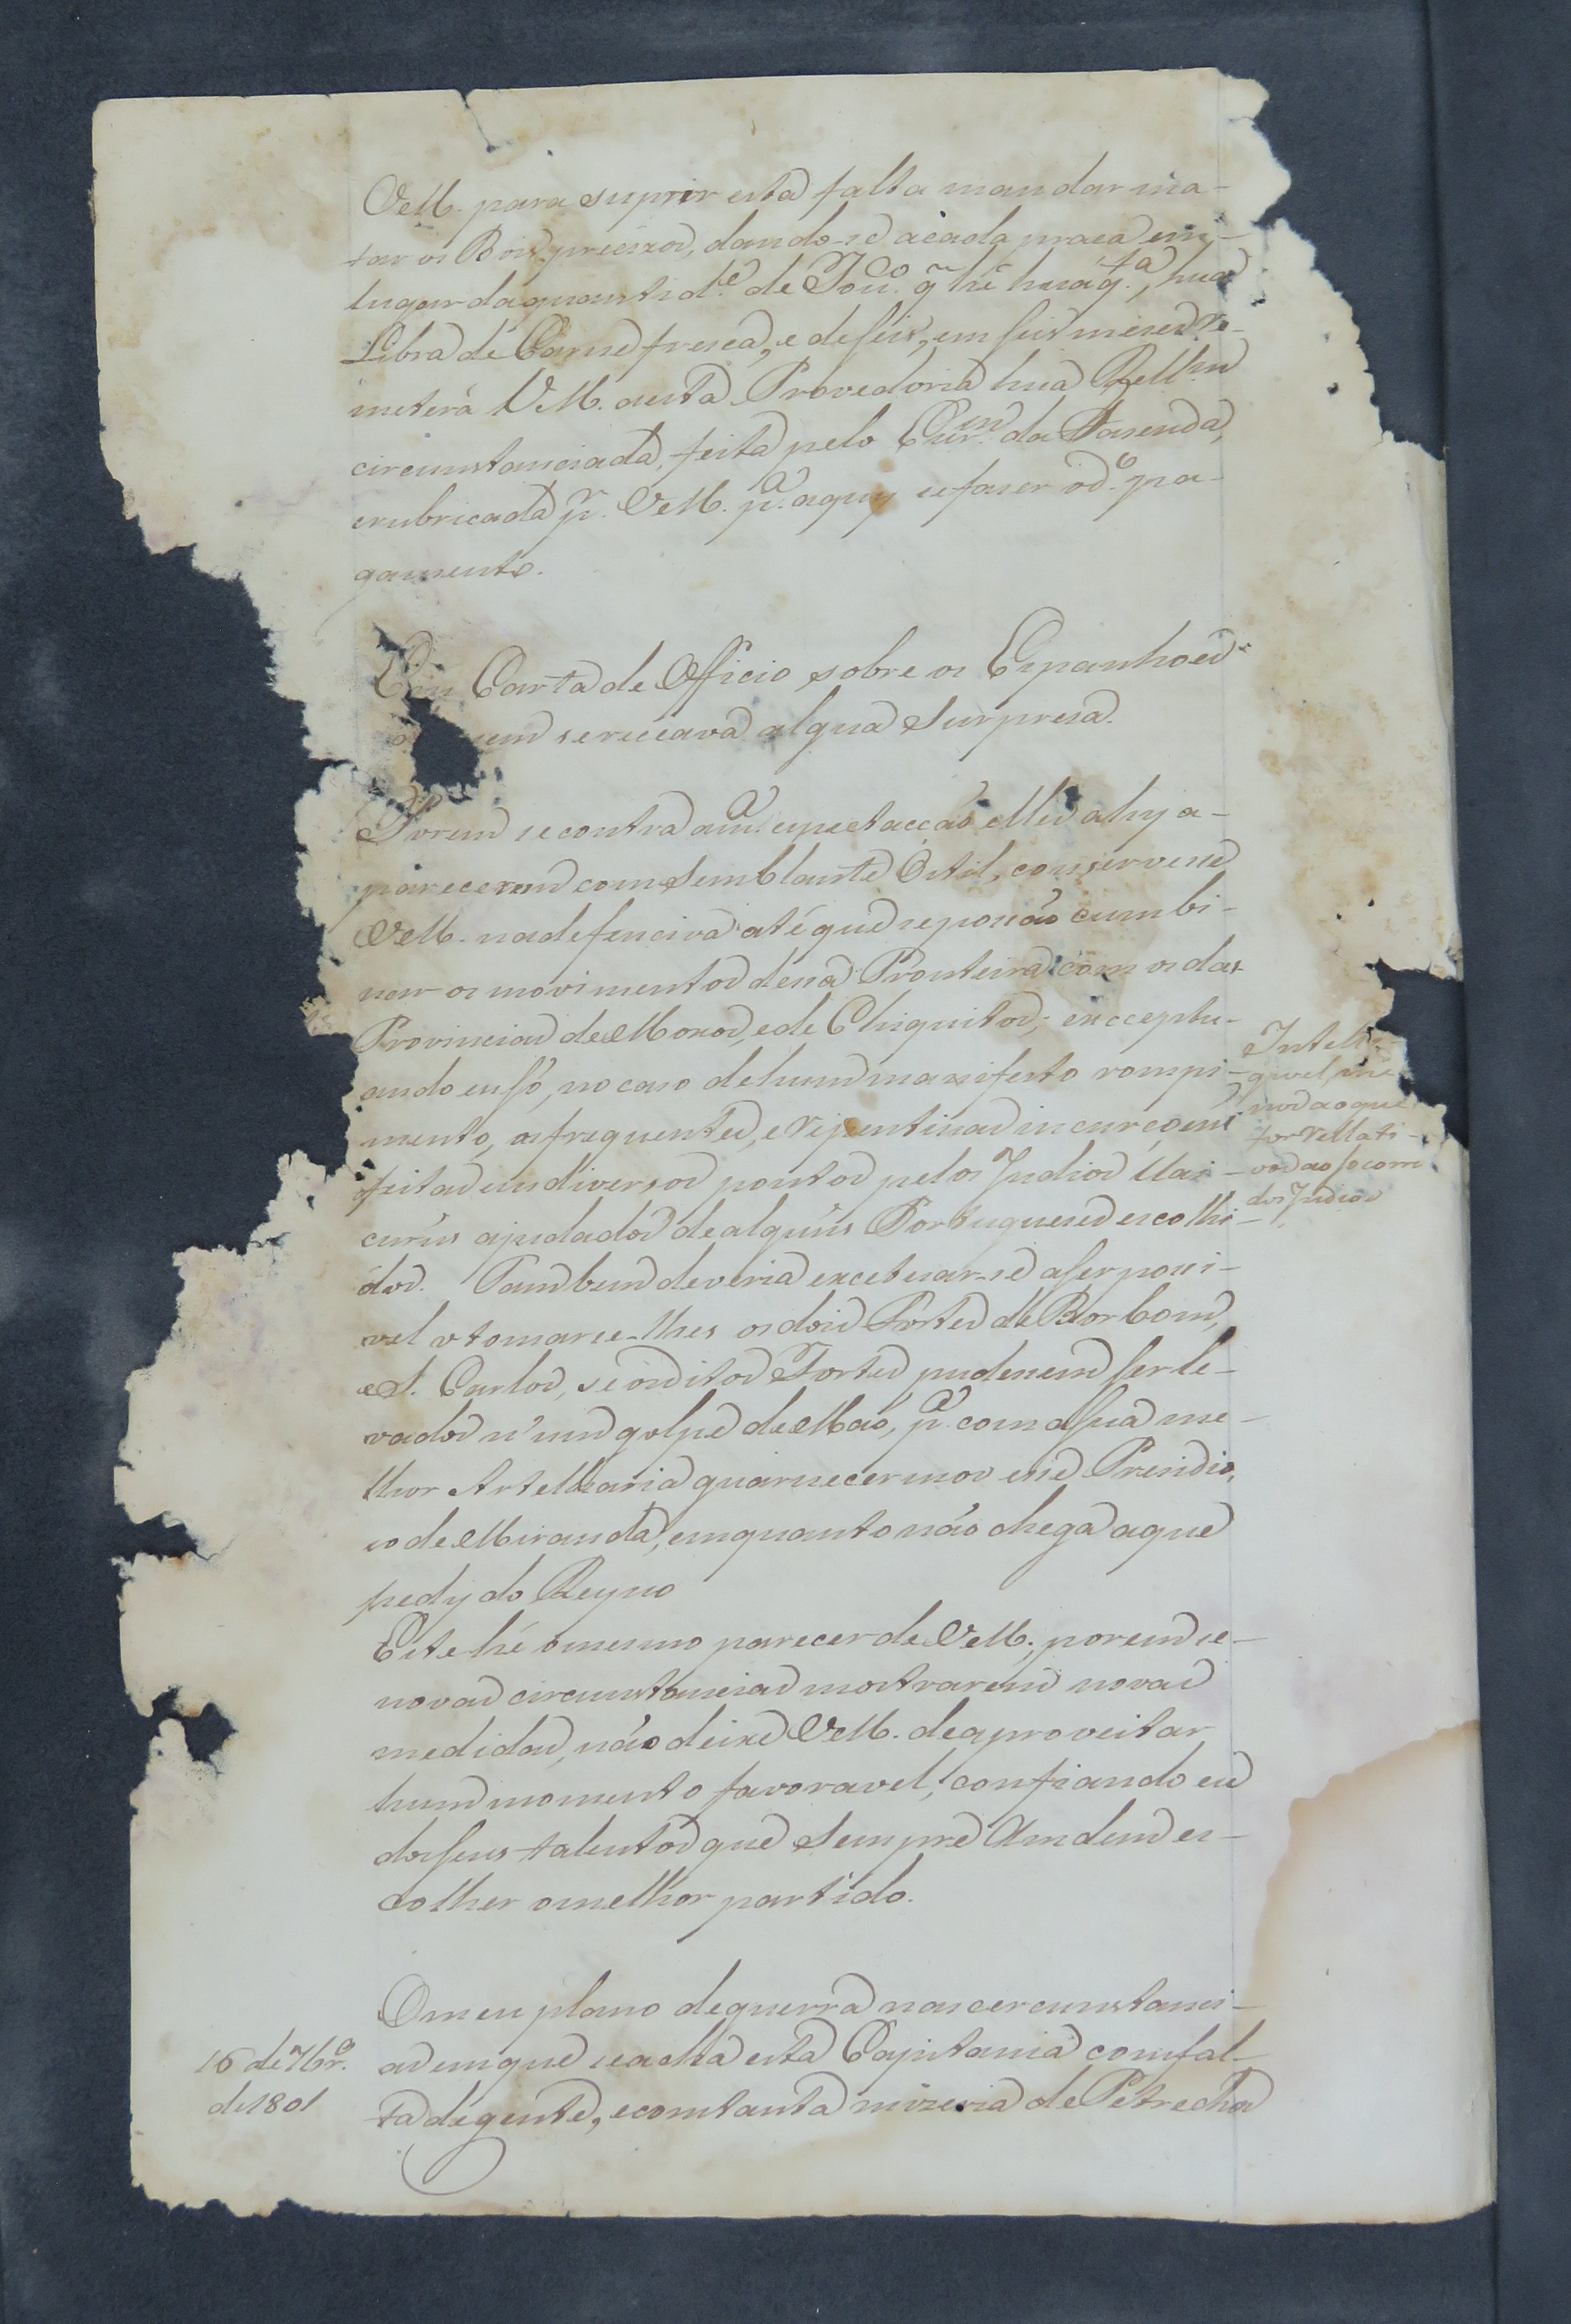 VM. para suprir esta falta mandar ma-
tar os Bois precizos, dando-se acada praça em
lugar da quantid.e de Touc.o q̃ hé huã q.ta, huã
Libra de Carne fresca, e de seis, em seis mezes re-
meterá VM. a esta Provedoria huã Rell.am
circunstanciada, feita pelo Escr.am da Fazenda,
erubricada p.r VM. p.a aquy sefazer o d.o pa-
gamento.
Em Carta de Officio sobre os Espanhoes
se receava algua Surpresa.
Porem se contra a m.a expectaccaó elles ahy a-
parecerem com Semblante Ostil, conservesse
VM. nadefenciva até que se possaõ cumbi-
nar os movimentos dessa Fronteira com os das
Provincias de Moxos, e de Chiquitos; excceptu-
ando eu só, no caso dehum manifesto rompi-
mento, as frequentes, e repentinas incurçoens
feitas em diversos pontos pelos Indios Uai-
curús ajudados dealguns Portugueses escolhi-
dos. Tambem deveria excetuar-se aser possi-
vel o tomarce-lhes os dois Fortes de Borbom,
e S. Carlos, se os ditos Fortes pudessem ser le-
vados n'um golpe de Maõ, p.a com a sua me-
lhor Artelharia guarnecermos esse Presidio,
eo de Miranda, emquanto não chega a que
pedy do Reyno
Este hé omesmo parecer de VM.; porem se
novas circunstancias mostrarem novas
medidas, não deixe VM. de aproveitar
hum momento favoravel, confiando eu
dos seus talentos que Sempre
colher omelhor partido.
O meu plano de guerra nas cercunstanci-
as em que se acha esta Capitania com fal-
ta degente, e com tanta mizeria de Petrechos
Inteli-
givel, me
nos ao que
for Rellati-
vo ao socorro
dos Indios
16 de 7br.o
de 1801